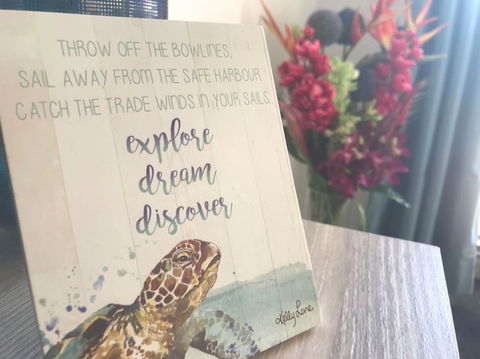 THROW OFF THE BOWLINES,
SAIL AWAY FROM THE SAFE HARBOUR
CATCH THE TRADE WINDS IN YOUR SAILS
explore
dream
discover
Kelly Lane